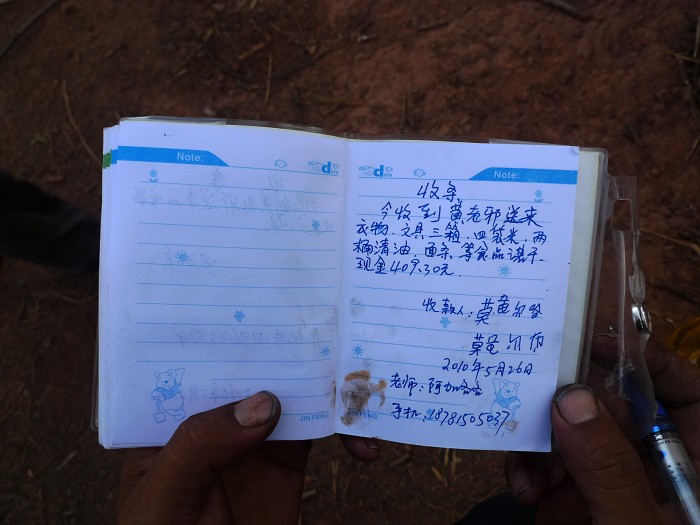 Note:
Note:
收条
今收到黄老邪送来
衣物、文具三箱，四袋米，两
桶清油，面条，等食品若干.
现金409.30元.
收款人：莫色
莫色
2010年5月26日
老师：阿加
手机：18781505037
JIN FENG
JIN FENG